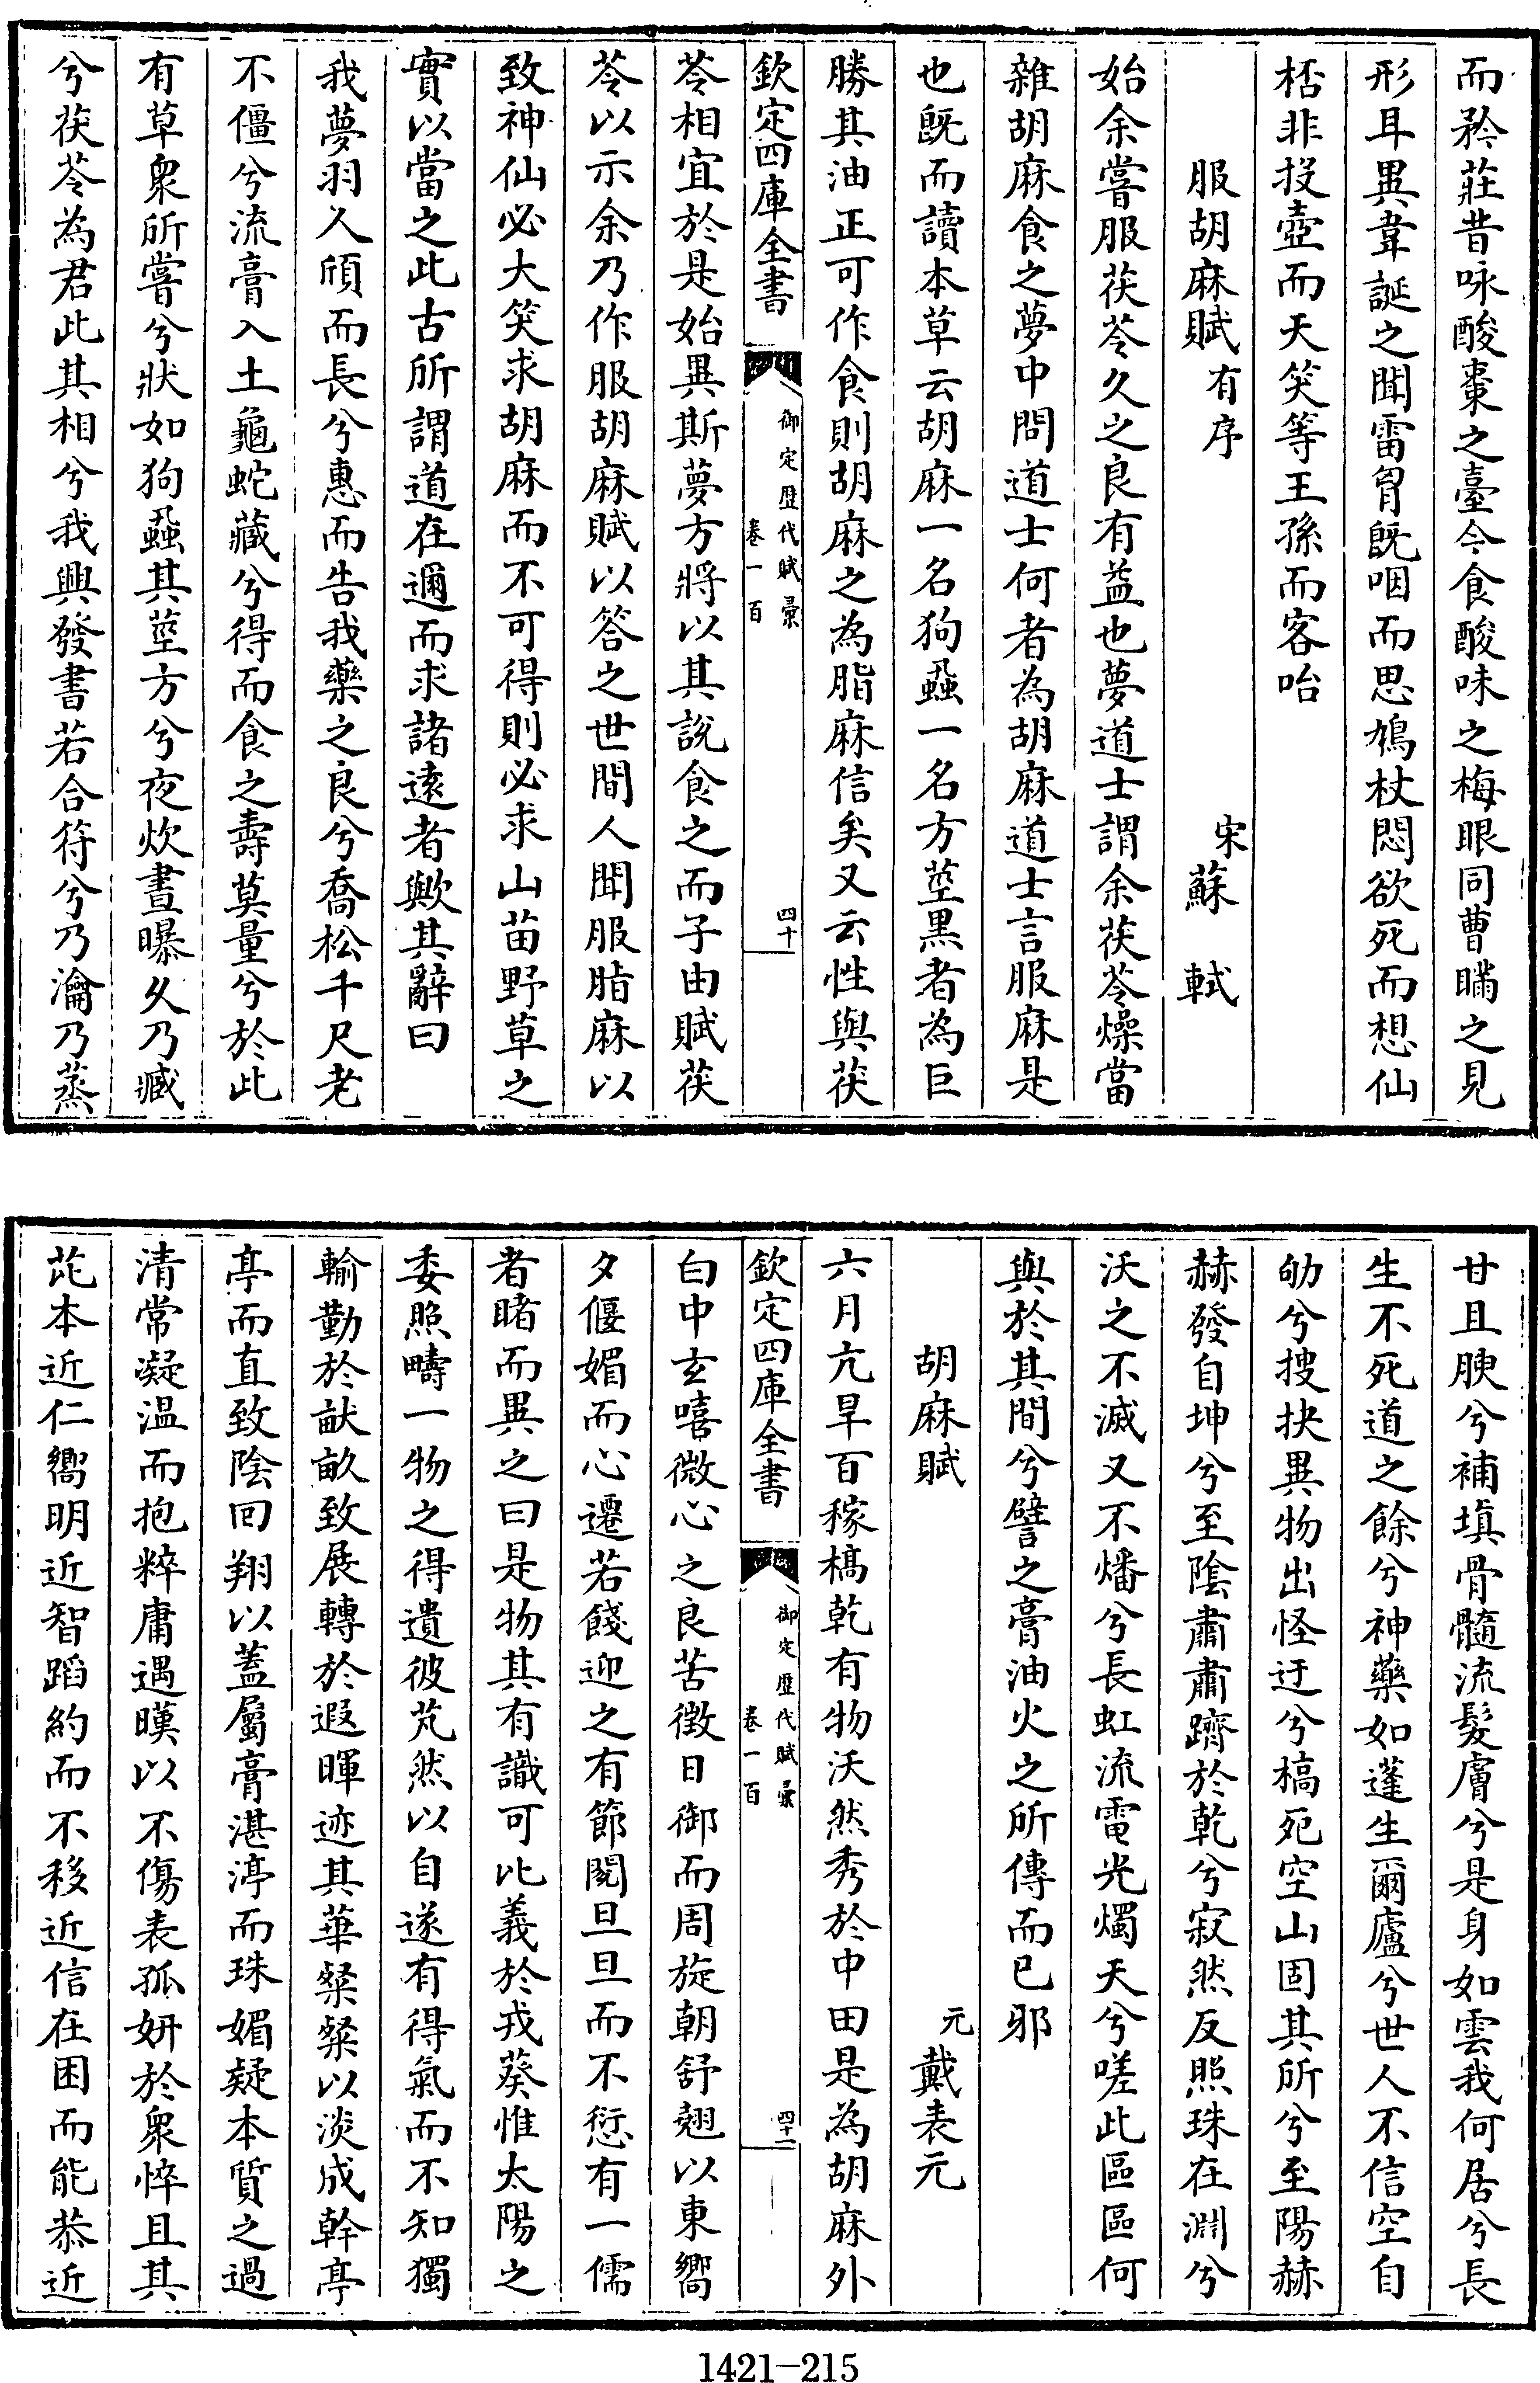 而矜莊昔咏酸棗之臺今食酸味之梅眼同曹瞞之見
形耳異韋誕之聞雷胷既咽而思鳩杖悶欲死而想仙
桮非投壺而天笑等王孫而客咍
服胡麻賦有序
宋蘇軾
始余嘗服茯苓久之良有益也夢道士謂余茯苓燥當
雜胡麻食之夢中問道士何者為胡麻道士言脂麻是
也既而讀本草云胡麻一名狗蝨一名方莖黑者為巨
勝其油正可作食則胡麻之為脂麻信矣又云性與茯
欽定四庫全書
御定歷代賦彙
卷一百
四十
苓相宜於是始異斯夢方將以其說食之而子由賦茯
苓以示余乃作服胡麻賦以答之世間人聞服脂麻以
致神仙必大笑求胡麻而不可得則必求山苗野草之
實以當之此古所謂道在邇而求諸遠者歟其辭曰
我夢羽人頎而長兮惠而告我藥之良兮喬松千尺老
不僵兮流膏入土龜蛇藏兮得而食之壽莫量兮於此
有草衆所嘗兮狀如狗蝨其莖方兮夜炊晝曝久乃臧
兮茯苓為君此其相兮我興發書若合符兮乃瀹乃蒸
甘且腴兮補塡骨髓流髮膚兮是身如雲我何居兮長
生不死道之餘兮神藥如蓬生爾廬兮世人不信空自
劬兮搜抉異物出怪迂兮槁死空山固其所兮至陽赫
赫發自坤兮至陰肅肅躋於乾兮寂然反照珠在淵兮
沃之不滅又不燔兮長虹流電光燭天兮嗟此區區何
與於其間兮譬之膏油火之所傳而已邪
胡麻賦
元戴表元
六月亢旱百稼槁乾有物沃然秀於中田是為胡麻外
欽定四庫全書
御定歷代賦彙
卷一百
四十一
白中玄嘻微心之良苦徵日御而周旋朝舒翹以東嚮
夕偃媚而心遷若餞迎之有節閱旦旦而不愆有一儒
者睹而異之曰是物其有識可比義於戎葵惟太陽之
委照疇一物之得遺彼芃然以自遂有得氣而不知獨
輸勤於畎畝致展轉於遐暉迹其華粲粲以淡成幹亭
亭而直致陰回翔以蓋屬膏湛渟而珠媚疑本質之過
清常凝温而抱粹庸遇暵以不傷表孤妍於衆悴且其
芘本近仁嚮明近智蹈約而不移近信在困而能恭近
1421-215